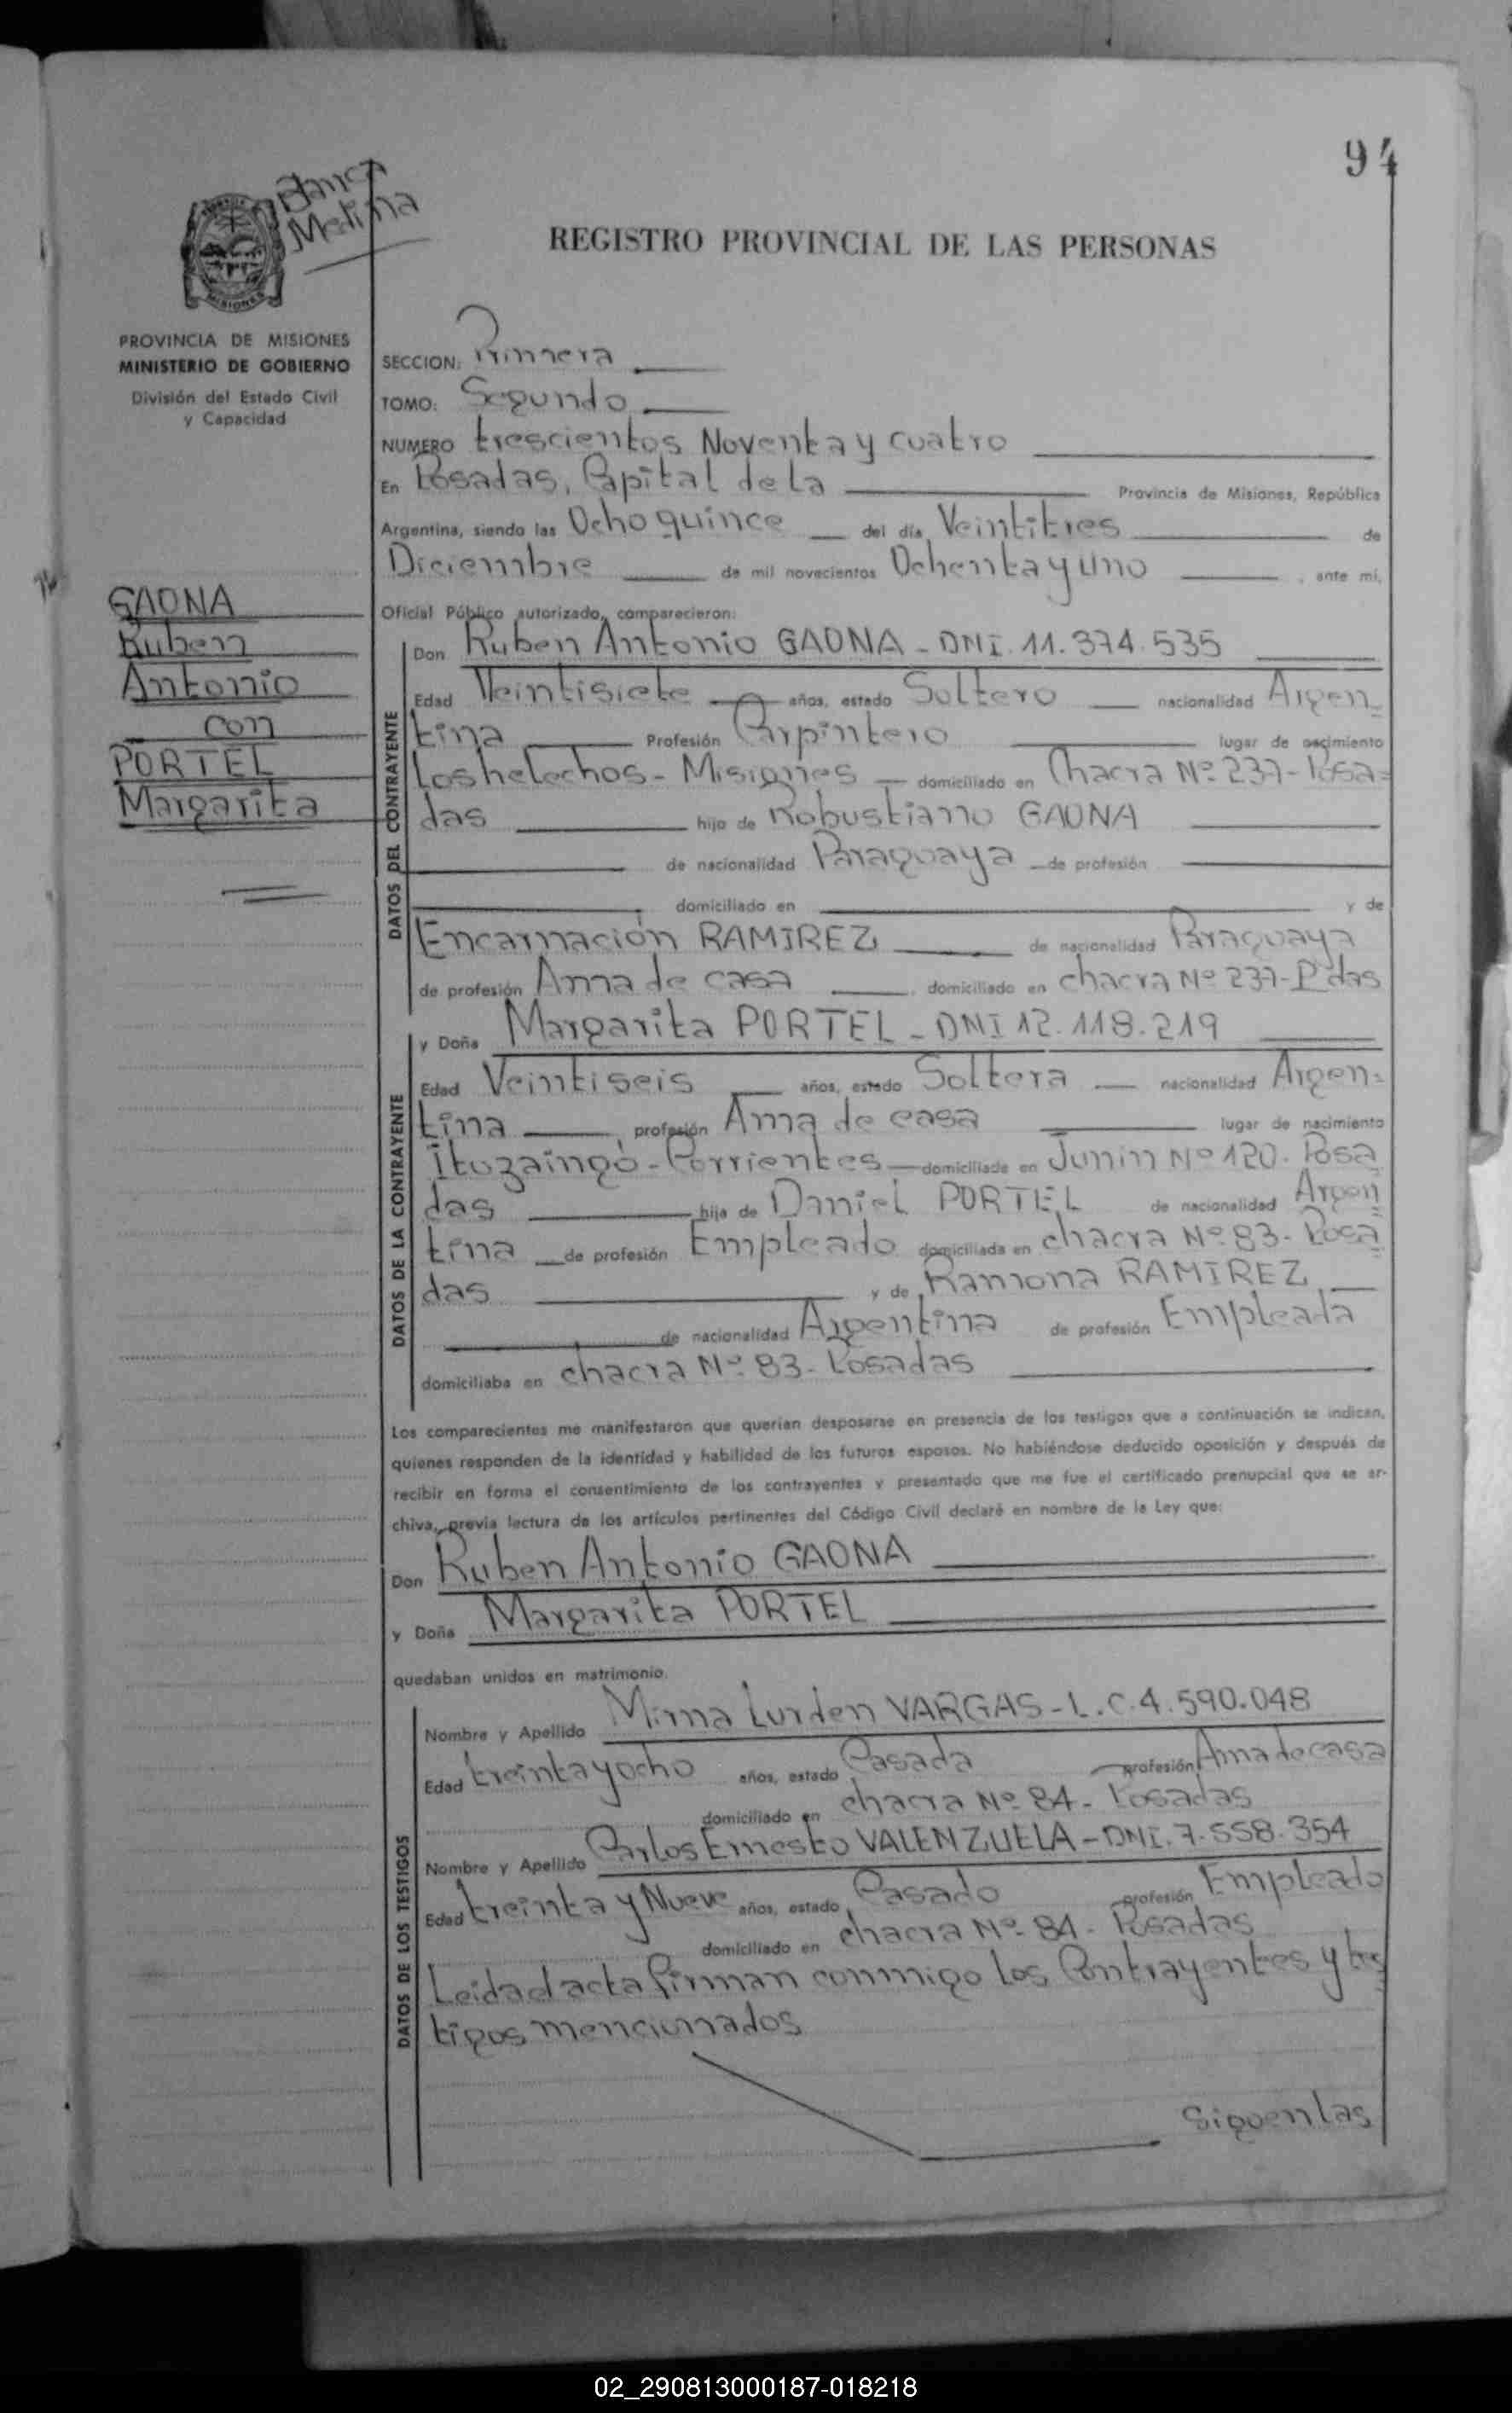 94
Blanca
Molina
REGISTRO PROVINCIAL DE LAS PERSONAS
MISIONES
PROVINCIA DE MISIONES
MINISTERIO DE GOBIERNO
División del Estado Civil
y Capacidad
SECCION: Primera
TOMO: Segundo
NUMERO trescientos Noventa y cuatro
En Posadas, Capital de La Provincia de Misiones, República
Argentina, siendo las Ocho quince del día Veintitres de
Diciembre de mil novecientos Ochenta y uno, ante mí,
Oficial Público autorizado, comparecieron:
GAONA
Ruben
Antonio
con
PORTEL
Margarita
DATOS DEL CONTRAYENTE
Don Ruben Antonio GAONA - DNI. 11.374.535
Edad Veintisiete años, estado Soltero nacionalidad Argen=
tina Profesión Carpintero lugar de nacimiento
Los helechos - Misiones - domiciliado en Chacra Nº 237 - Posa=
das hijo de Robustiano GAONA
de nacionalidad Paraguaya de profesión
domiciliado en y de
Encarnación RAMIREZ de nacionalidad Paraguaya
de profesión Ama de casa domiciliado en chacra Nº 237 - Pdas
DATOS DE LA CONTRAYENTE
y Doña Margarita PORTEL - DNI 12.118.219
Edad Veintiseis años, estado Soltera nacionalidad Argen=
tina, profesión Ama de casa lugar de nacimiento
Ituzaingó - Corrientes - domiciliada en Junin Nº 120. Posa
das hija de Daniel PORTEL de nacionalidad Argen
tina de profesión Empleado domiciliada en chacra Nº 83 - Posa
das y de Ramona RAMIREZ
de nacionalidad Argentina de profesión Empleada
domiciliaba en chacra Nº 83 - Posadas
Los comparecientes me manifestaron que querían desposarse en presencia de los testigos que a continuación se indican,
quienes responden de la identidad y habilidad de los futuros esposos. No habiéndose deducido oposición y después de
recibir en forma el consentimiento de los contrayentes y presentado que me fue el certificado prenupcial que se ar-
chiva, previa lectura de los artículos pertinentes del Código Civil declaré en nombre de la Ley que:
Don Ruben Antonio GAONA
y Doña Margarita PORTEL
quedaban unidos en matrimonio.
DATOS DE LOS TESTIGOS
Nombre y Apellido Mirna Lurden VARGAS - L.C. 4.590.048
Edad treinta y ocho años, estado Casada profesión Ama de casa
domiciliado en chacra Nº 84 - Posadas
Nombre y Apellido Carlos Ernesto VALENZUELA - DNI. 7.558.354
Edad treinta y Nueve años, estado Casado profesión Empleado
domiciliado en chacra Nº 84 - Posadas
Leida el acta firman conmigo los Contrayentes y tes
tigos mencionados
Siguen las
02_290813000187-018218